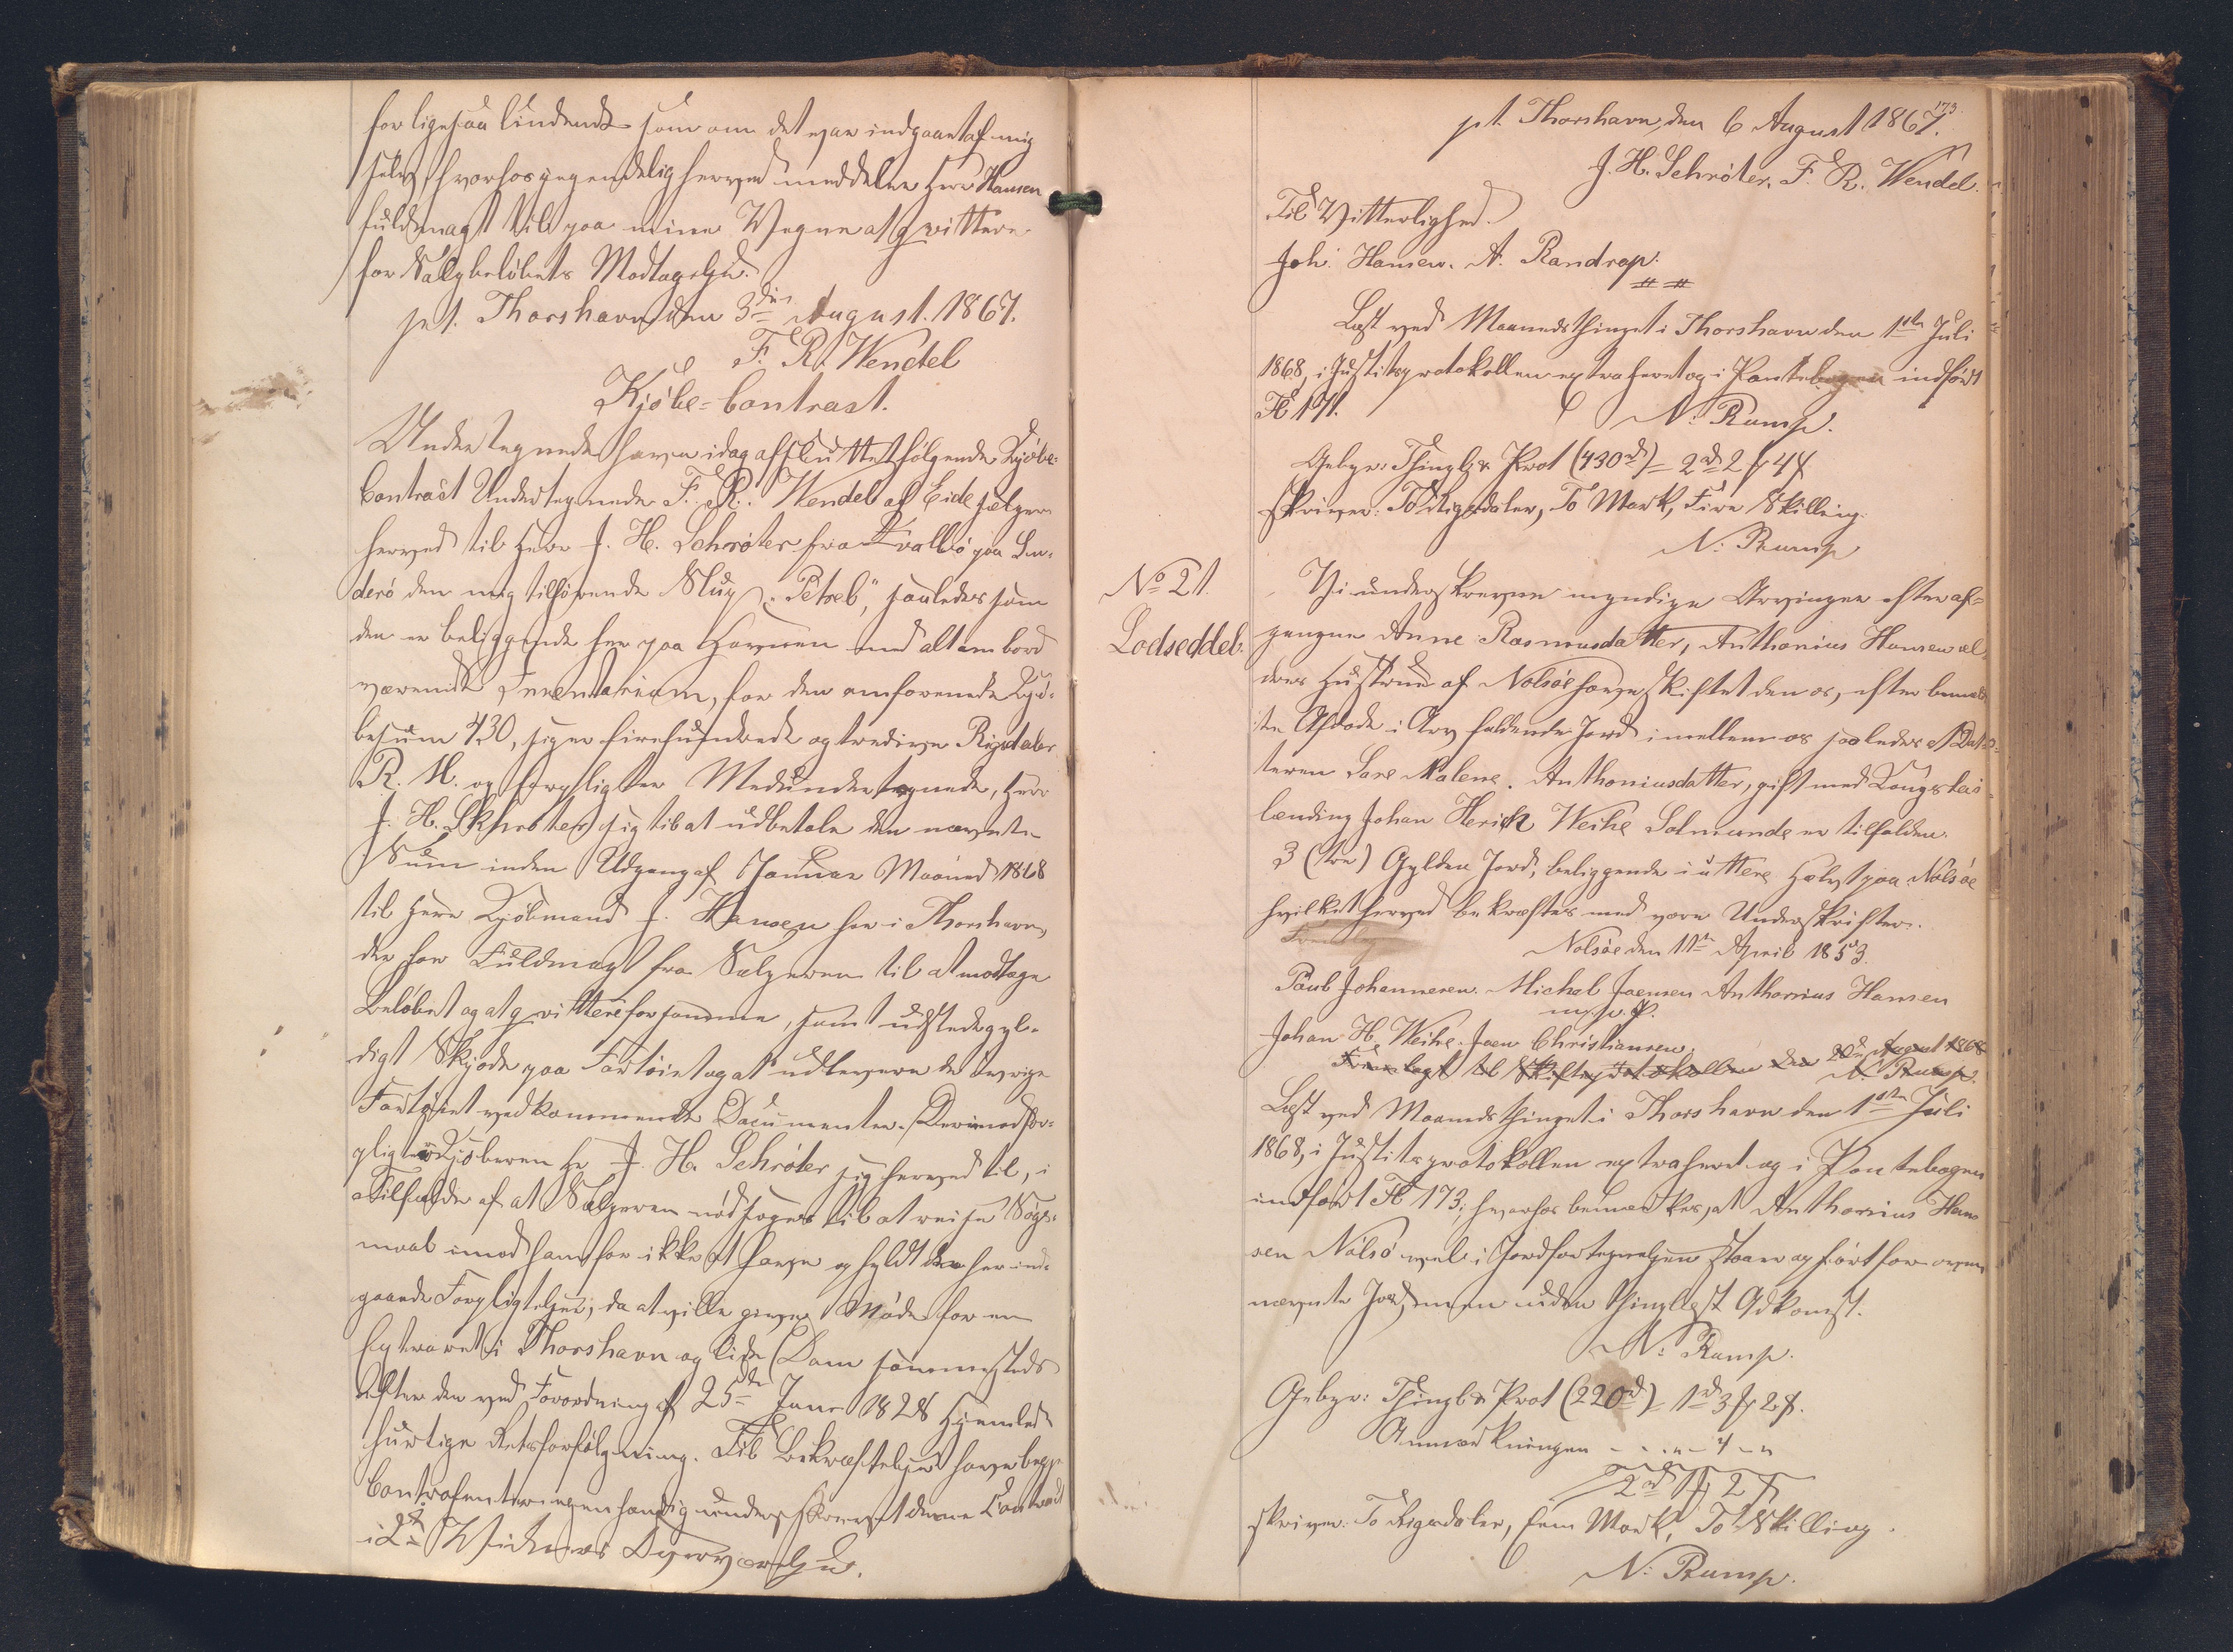 for ligesaa bindende som om det var indgaaet af mig
selv, hvorhos jeg endelig herved meddeler Herr Hansen
fuldmagt til paa mine Vegne at qvittere
for Salgbeløbets Modtagelse.
pt. Thorshavn den 3die August 1867.
F. R. Wendel
Kjøbe-Contract.
Undertegnede have idag afsluttet følgende Kjøbe-
Contract Undertegnede F. R. Wendel af Eide sælger
herved til Herr J. H. Schrøter fra Tvallbø paa Su-
derø den mig tilhørende Slup "Petrel", saaledes som
den er beliggende her paa Havnen med alt ombord
værende Inventarium, for den omforenede Kjø-
besum 430, siger firehundrede og tredive Rigsdaler
R. M. og forpligter Medundertegnede, Herr
J. H. Schrøter sig til at udbetale den nævnte
Sum inden Udgang af Januar Maaned 1868
til Herr Kjøbmand J. Hansen her i Thorshavn,
der har Fuldmagt fra Sælgeren til at modtage
Beløbet og at qvittere for samme, samt udstede gyl-
digt Skjøde paa Fartøiet og at udlevere de øvrige
Fartøiet vedkommende Documenter. Derimod for-
pligter Kjøberen Hr J. H. Schrøter sig herved til, i
Tilfælde af at Sælgeren nødsages til at reise Søgs-
maal imod ham for ikke at have opfyldt den her ind-
gaaede Forpligtelse, da at ville give Møde for en
Extraret i Thorshavn og lide Dom sammesteds
efter den ved Forordning af 25de Janr 1828 hjemlede
hurtige Retsforfølgning. Til Bekræftelse have begge
Contrahenter egenhændig underskrevet denne Contract
i 2de Vidners Overværelse.
173.
pt. Thorshavn, den 6 August 1867.
J. H. Schrøter. F. R. Wendel.
Til Vitterlighed.
Joh. Hansen. A. Randrop.
Læst ved Maanedsthinget i Thorshavn den 1ste Juli
1868, i Justitsprotokollen extraheret og i Pantebogen indført
Fol 171.
N. Rump.
Gebyr: Thingl & Prot (430 rd) = 2 rd 2 ℳ 4 ß
skriver: To Rigsdaler, To Mark, Fire Skilling.
N. Rump
No 21.
Lodseddel.
Vi underskrevne myndige Arvinger efter af-
gangne Anne Rasmusdatter, Anthonius Hansen æl-
dres Hustrue af Nolsøe have skiftet den os, efter bemeld-
te Afdøde i Arv faldende Jord imellem os saaledes at Dat-
teren Sare Malene Anthoniusdatter, gift med Kongsfæi-
lænding Johan Herich Weihe Solmunde er tilfalden.
3 (tre) Gylden Jord, beliggende i uttere Hælvt paa Nolsøe
hvilket herved bekræftes med vore Underskrifter.
Nolsøe den 11te April 1853.
Poul Johannesen. Michel Joensen Anthonius Hansen
m. f. P.
Johan H. Weihe. Joen Christiansen.
Fremlagt til Skifteprotokollen den 20de August 1868
N. Rump.
Læst ved Maanedsthinget i Thorshavn den 1ste Juli
1868, i Justitsprotokollen extraheret og i Pantebogen
indført Fol 173; hvorhos bemærkes, at Anthonius Han-
sen Nolsø vel i Jordfortegnelsen staar opført for oven-
nævnte Jord, men uden thinglæst Adkomst.
N. Rump.
Gebyr: Thingl & Prot (220 rd) = 1 rd 3 ℳ 2 ß.
Anmærkningen - - - „ - 4 - „
2 rd 1 ℳ 2 ß
skriver: To Rigsdaler, Een Mark, To Skilling.
N. Rump.